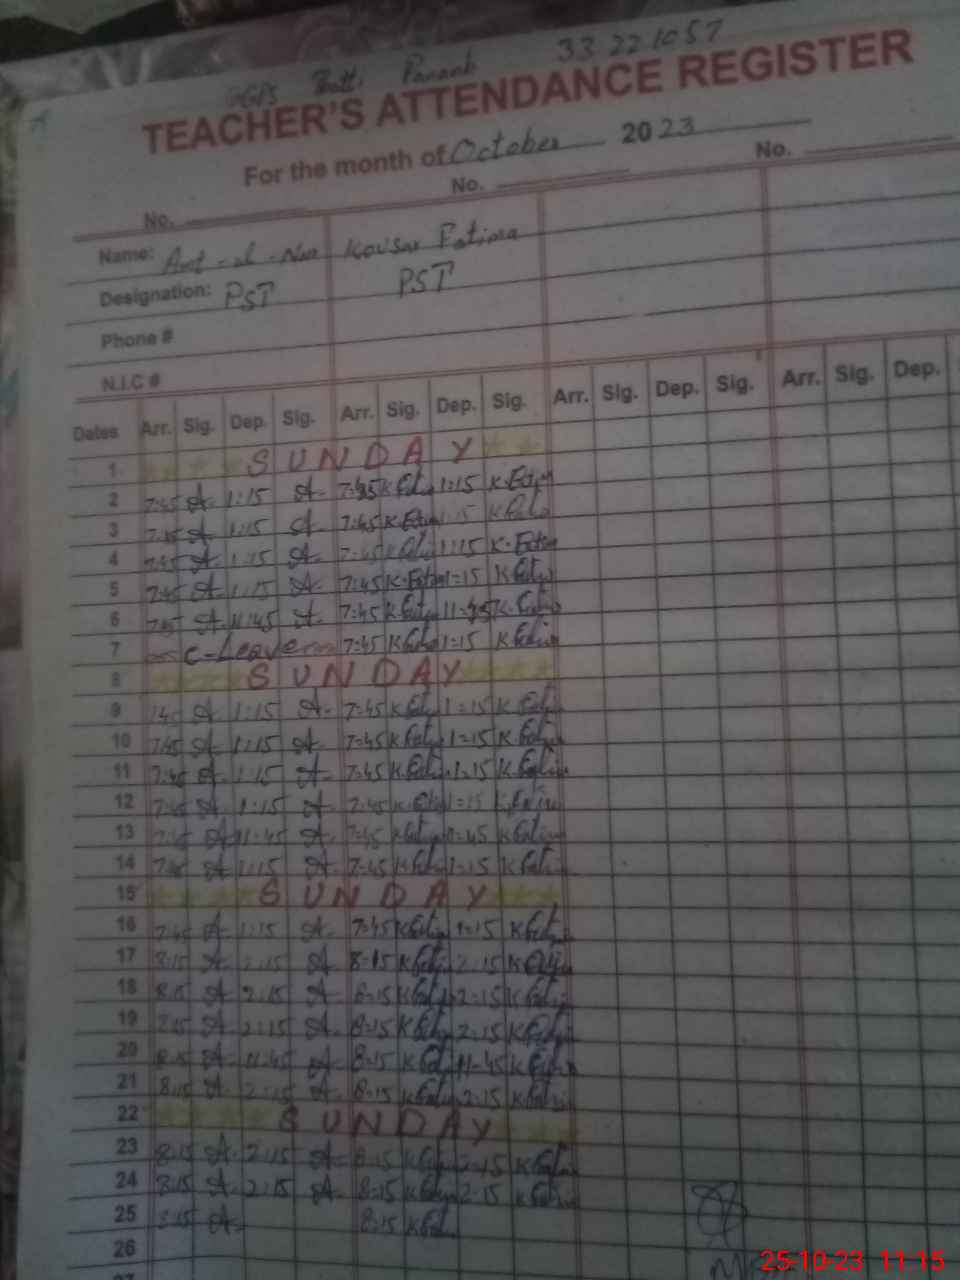 GGPS Bhatti Panank 33221057
TEACHER'S ATTENDANCE REGISTER
For the month of October 2023
No. No. No.
Name: Amt-ul-Noor Kousar Fatima
Designation: PST PST
Phone #
N.I.C #
Dates Arr. Sig. Dep. Sig. Arr. Sig. Dep. Sig. Arr. Sig. Dep. Sig. Arr. Sig. Dep.
1 SUNDAY
2 7:45 A 1:15 A 7:45 K.Fatima 1:15 K.Fatima
3 7:45 A 1:15 A 7:45 K.Fatima 1:15 K.Fatima
4 7:45 A 1:15 A 7:45 K.Fatima 1:15 K.Fatima
5 7:45 A 1:15 A 7:45 K.Fatima 1=15 K.Fatima
6 7:45 A 11:45 A 7:45 K.Fatima 11=45 K.Fatima
7 C-Leave 7:45 K.Fatima 1=15 K.Fatima
8 SUNDAY
9 7:45 A 1:15 A 7=45 K.Fatima 1=15 K.Fatima
10 7:45 A 1:15 A 7=45 K.Fatima 1=15 K.Fatima
11 7:45 A 1:15 A 7=45 K.Fatima 1=15 K.Fatima
12 7:45 A 1:15 A 7:45 K.Fatima 1=15 K.Fatima
13 7:45 A 11:45 A 7=45 K.Fatima 11=45 K.Fatima
14 7:45 A 1:15 A 7=45 K.Fatima 1=15 K.Fatima
15 SUNDAY
16 7:45 A 1:15 A 7=45 K.Fatima 1=15 K.Fatima
17 8:15 A 2:15 A 8=15 K.Fatima 2:15 K.Fatima
18 8:15 A 2:15 A 8=15 K.Fatima 2=15 K.Fatima
19 8:15 A 2:15 A 8=15 K.Fatima 2:15 K.Fatima
20 8:15 A 11:45 A 8=15 K.Fatima 11-45 K.Fatima
21 8:15 A 2:15 A 8=15 K.Fatima 2:15 K.Fatima
22 SUNDAY
23 8:15 A 2:15 A 8=15 K.Fatima 2:15 K.Fatima
24 8:15 A 2:15 A 8=15 K.Fatima 2:15 K.Fatima
25 8:15 A 8:15 K.Fat
26
27
25-10-23 11:15